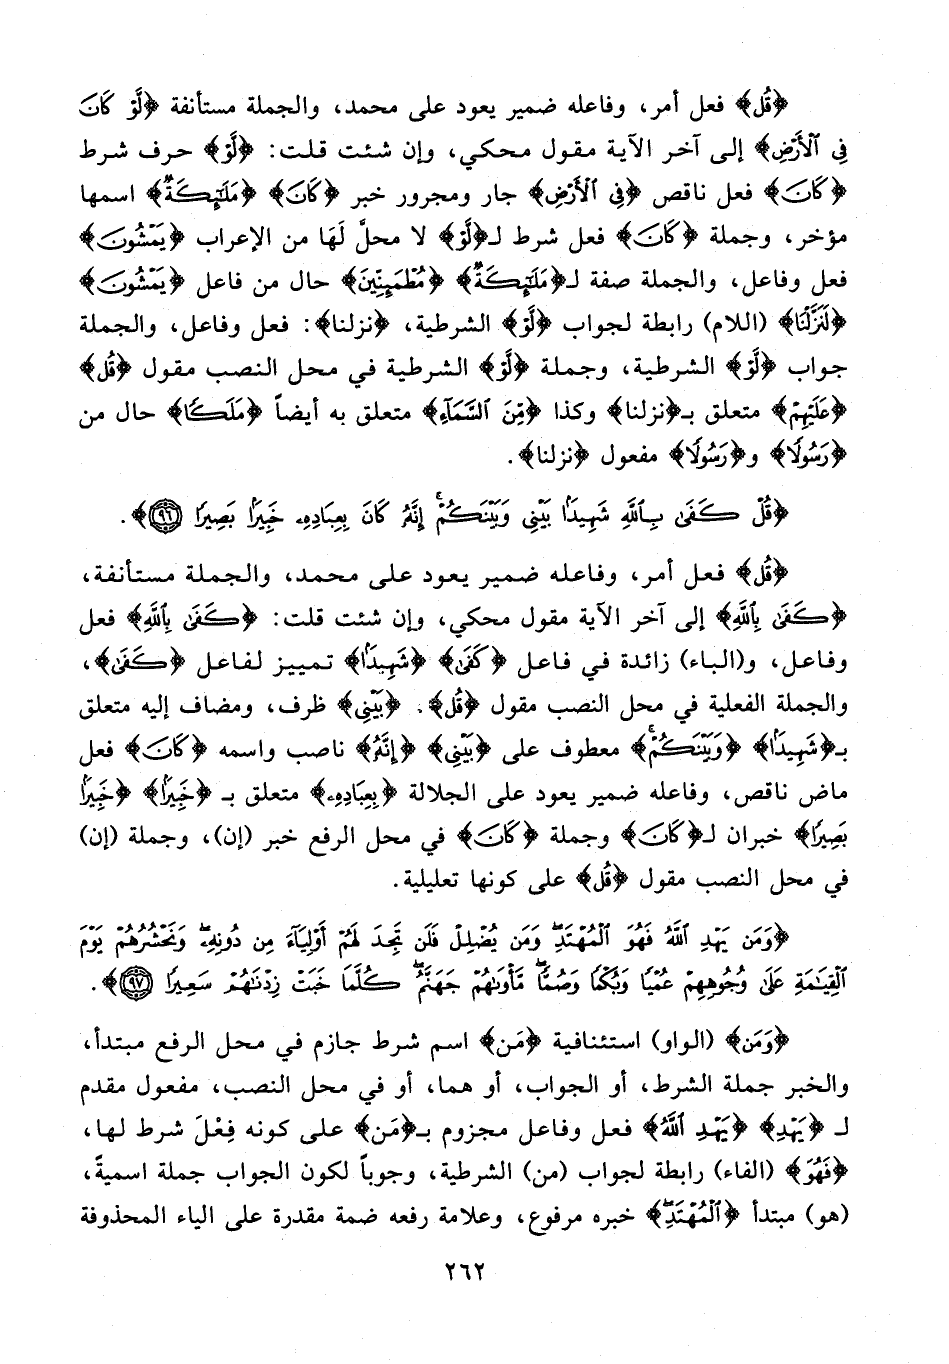 ﴿قُل﴾ فعل أمر، وفاعله ضمير يعود على محمد، والجملة مستأنفة ﴿لَّوْ كَانَ
فِى ٱلْأَرْضِ﴾ إلى آخر الآية مقول محكي، وإن شئت قلت: ﴿لَّوْ﴾ حرف شرط
﴿كَانَ﴾ فعل ناقص ﴿فِى ٱلْأَرْضِ﴾ جار ومجرور خبر ﴿كَانَ﴾ ﴿مَلَـٰٓئِكَةٌ﴾ اسمها
مؤخر، وجملة ﴿كَانَ﴾ فعل شرط لـ﴿لَّوْ﴾ لا محلَّ لَهَا من الإعراب ﴿يَمْشُونَ﴾
فعل وفاعل، والجملة صفة لـ﴿مَلَـٰٓئِكَةٌ﴾ ﴿مُطْمَئِنِّينَ﴾ حال من فاعل ﴿يَمْشُونَ﴾
﴿لَنَزَّلْنَا﴾ (اللام) رابطة لجواب ﴿لَّوْ﴾ الشرطية، ﴿نزلنا﴾: فعل وفاعل، والجملة
جواب ﴿لَّوْ﴾ الشرطية، وجملة ﴿لَّوْ﴾ الشرطية في محل النصب مقول ﴿قُل﴾
﴿عَلَيْهِم﴾ متعلق بـ﴿نزلنا﴾ وكذا ﴿مِّنَ ٱلسَّمَآءِ﴾ متعلق به أيضاً ﴿مَلَكًا﴾ حال من
﴿رَسُولًا﴾ و﴿رَسُولًا﴾ مفعول ﴿نزلنا﴾.
﴿قُلْ كَفَىٰ بِٱللَّهِ شَهِيدًۢا بَيْنِى وَبَيْنَكُمْ ۚ إِنَّهُۥ كَانَ بِعِبَادِهِۦ خَبِيرًۢا بَصِيرًا ٩٦﴾.
﴿قُل﴾ فعل أمر، وفاعله ضمير يعود على محمد، والجملة مستأنفة،
﴿كَفَىٰ بِٱللَّهِ﴾ إلى آخر الآية مقول محكي، وإن شئت قلت: ﴿كَفَىٰ بِٱللَّهِ﴾ فعل
وفاعل، و(الباء) زائدة في فاعل ﴿كَفَىٰ﴾ ﴿شَهِيدًۢا﴾ تمييز لفاعل ﴿كَفَىٰ﴾،
والجملة الفعلية في محل النصب مقول ﴿قُل﴾. ﴿بَيْنِى﴾ ظرف، ومضاف إليه متعلق
بـ﴿شَهِيدًۢا﴾ ﴿وَبَيْنَكُمْ ۚ﴾ معطوف على ﴿بَيْنِى﴾ ﴿إِنَّهُۥ﴾ ناصب واسمه ﴿كَانَ﴾ فعل
ماض ناقص، وفاعله ضمير يعود على الجلالة ﴿بِعِبَادِهِۦ﴾ متعلق بـ ﴿خَبِيرًۢا﴾ ﴿خَبِيرًۢا
بَصِيرًا﴾ خبران لـ﴿كَانَ﴾ وجملة ﴿كَانَ﴾ في محل الرفع خبر (إن)، وجملة (إن)
في محل النصب مقول ﴿قُل﴾ على كونها تعليلية.
﴿وَمَن يَهْدِ ٱللَّهُ فَهُوَ ٱلْمُهْتَدِ ۖ وَمَن يُضْلِلْ فَلَن تَجِدَ لَهُمْ أَوْلِيَآءَ مِن دُونِهِۦ ۖ وَنَحْشُرُهُمْ يَوْمَ
ٱلْقِيَـٰمَةِ عَلَىٰ وُجُوهِهِمْ عُمْيًا وَبُكْمًا وَصُمًّا ۖ مَّأْوَىٰهُمْ جَهَنَّمُ ۖ كُلَّمَا خَبَتْ زِدْنَـٰهُمْ سَعِيرًا ٩٧﴾.
﴿وَمَن﴾ (الواو) استئنافية ﴿مَن﴾ اسم شرط جازم في محل الرفع مبتدأ،
والخبر جملة الشرط، أو الجواب، أو هما، أو في محل النصب، مفعول مقدم
لـ ﴿يَهْدِ﴾ ﴿يَهْدِ ٱللَّهُ﴾ فعل وفاعل مجزوم بـ﴿مَن﴾ على كونه فِعْلَ شرط لها،
﴿فَهُوَ﴾ (الفاء) رابطة لجواب (من) الشرطية، وجوباً لكون الجواب جملة اسميةً،
(هو) مبتدأ ﴿ٱلْمُهْتَدِ ۖ﴾ خبره مرفوع، وعلامة رفعه ضمة مقدرة على الياء المحذوفة
٢٦٢